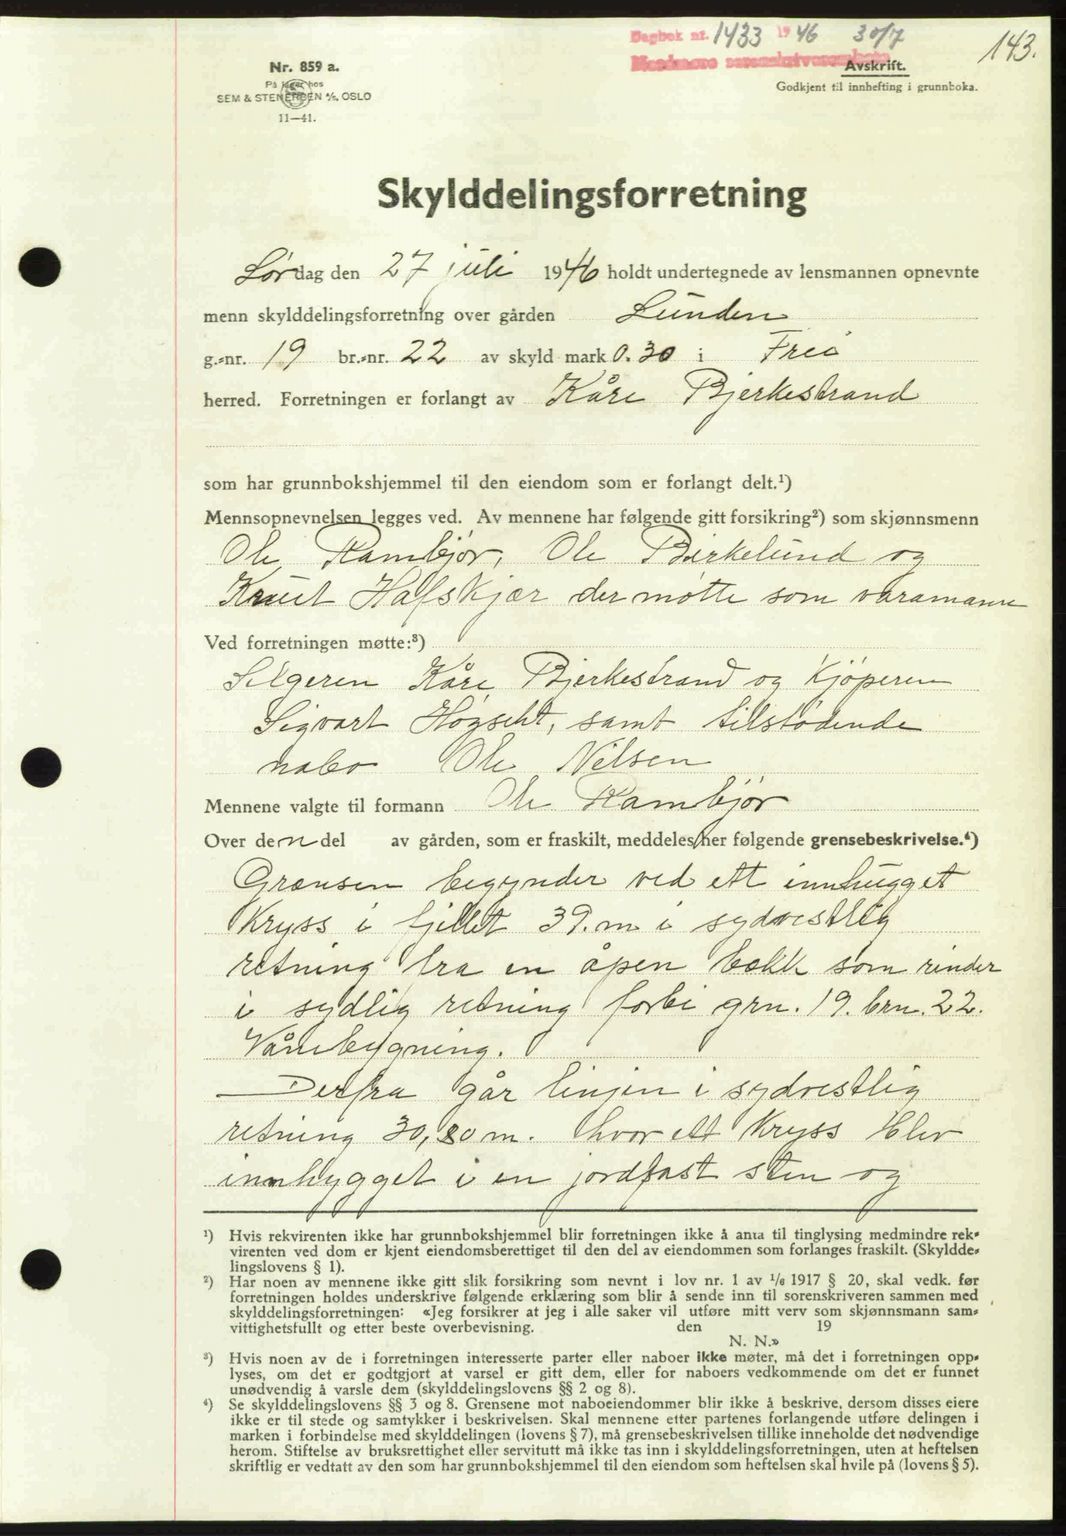 Dagbok nr. 1433 1946 30/7
143.
Nordmøre sorenskriverembete
Avskrift.
Godkjent til innhefting i grunnboka.
Nr. 859 a.
På lager hos
SEM & STENERSEN A/S, OSLO
11—41.
Skylddelingsforretning
Lørdag den 27 juli 1946 holdt undertegnede av lensmannen opnevnte
menn skylddelingsforretning over gården Lunden
g.-nr. 19 br.-nr. 22 av skyld mark 0.30 i Frei
herred. Forretningen er forlangt av Kåre Bjerkestrand
som har grunnbokshjemmel til den eiendom som er forlangt delt.¹)
Mennsopnevnelsen legges ved. Av mennene har følgende gitt forsikring²) som skjønnsmenn
Ole Rambjør, Ole Birkelund og
Knut Hafskjær der møtte som varamann
Ved forretningen møtte:³)
Selgeren Kåre Bjerkestrand og Kjøperen
Sigvart Høgseth, samt tilstødende
nabo Ole Nilsen
Mennene valgte til formann Ole Rambjør
Over den del av gården, som er fraskilt, meddeles her følgende grensebeskrivelse.⁴)
Grænsen begynder ved ett innhugget
Kryss i fjellet 39.m i sydvestlig
retning fra en åpen bekk som rinder
i sydlig retning forbi grn. 19. brn. 22.
Vånebygning.
— Derfra går linjen i sydvestlig
retning 30,80 m. hvor ett Kryss blev
innhygget i en jordfast sten og
¹) Hvis rekvirenten ikke har grunnbokshjemmel blir forretningen ikke å anta til tinglysing medmindre rek-
virenten ved dom er kjent eiendomsberettiget til den del av eiendommen som forlanges fraskilt. (Skyldde-
lingslovens § 1).
²) Har noen av mennene ikke gitt slik forsikring som nevnt i lov nr. 1 av 1/6 1917 § 20, skal vedk. før
forretningen holdes underskrive følgende erklæring som blir å sende inn til sorenskriveren sammen med
skylddelingsforretningen: «Jeg forsikrer at jeg i alle saker vil utføre mitt verv som skjønnsmann sam-
vittighetsfullt og etter beste overbevisning. den 19
N. N.»
³) Hvis noen av de i forretningen interesserte parter eller naboer ikke møter, må det i forretningen opp-
lyses, om det er godtgjort at varsel er gitt dem, eller for naboers vedkommende om det er funnet
unødvendig å varsle dem (skylddelingslovens §§ 2 og 8).
⁴) Se skylddelingslovens §§ 3 og 8. Grensene mot naboeiendommer blir ikke å beskrive, dersom disses eiere
ikke er til stede og samtykker i beskrivelsen. Skal mennene etter partenes forlangende utføre delingen i
marken i forbindelse med skylddelingen (lovens § 7), må grensebeskrivelsen tillike inneholde det nødvendige
herom. Stiftelse av bruksrettighet eller servitutt må ikke tas inn i skylddelingsforretningen, uten at heftelsen
skriftlig er vedtatt av den som har grunnbokshjemmel til den eiendom som heftelsen skal hvile på (lovens § 5).